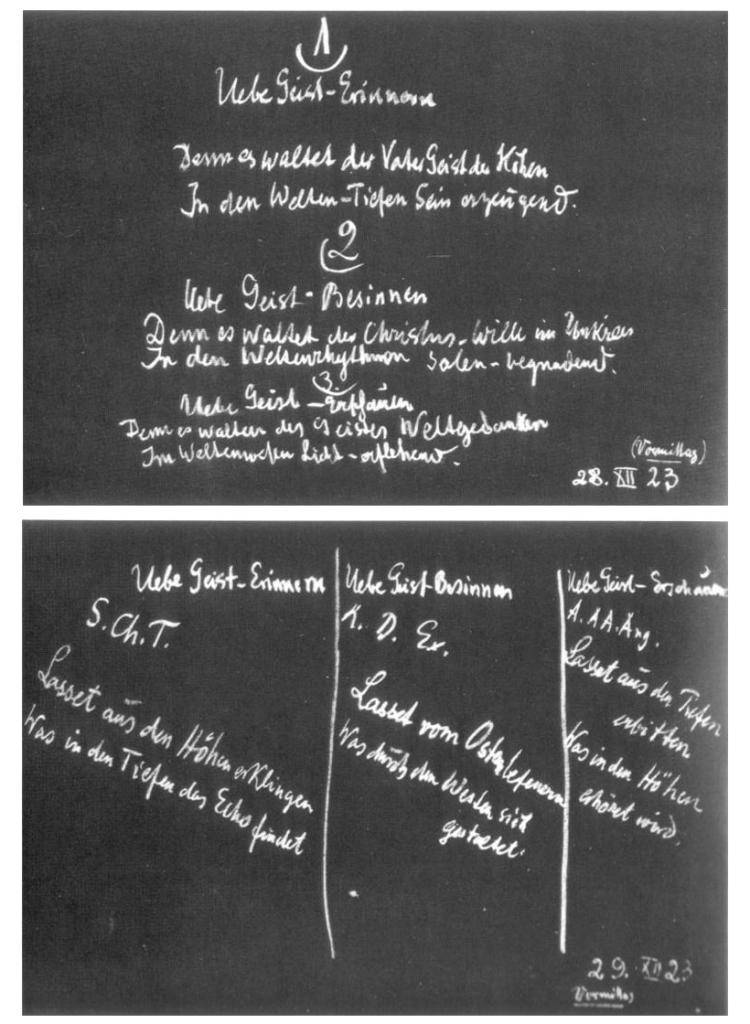 1
Uebe Geist-Erinnern
Denn es waltet der Vater Geist der Höhen
In den Welten-Tiefen Sein erzeugend.
2
Uebe Geist-Besinnen
Denn es waltet der Christus-Wille im Umkreis
In den Weltenrhythmen Seelen-begnadend.
3.
Uebe Geist-Erschauen
Denn es walten des Geistes Weltgedanken
Im Weltenwesen Licht-erflehend.
(Vormittag)
28. XII 23
Uebe Geist-Erinnern
S. Ch. T.
Lasset aus den Höhen erklingen
Was in den Tiefen das Echo findet
Uebe Geist-Besinnen
K. D. Ex.
Lasset vom Osten befeuern
Was durch den Westen sich
gestaltet.
Uebe Geist-Erschauen
A. AA. Ang.
Lasset aus den Tiefen
erbitten
Was in den Höhen
erhöret wird.
29. XII 23
Vormittag